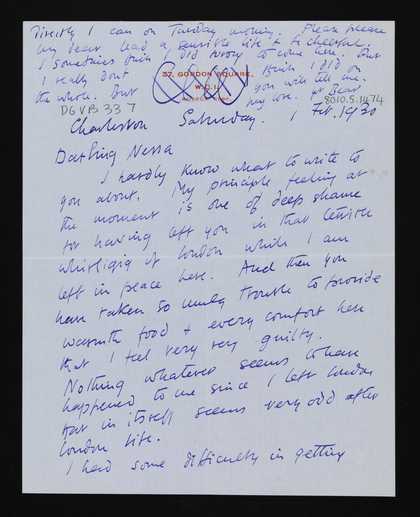 Directly I can on Tuesday morning. Please please
my dear lead a sensible life & be cheerful.
I sometimes think I did wrong to come here. But
I really dont think I did on
the whole. But you will tell me.
my love. yr Bear
37, GORDON SQUARE,
W.C.1.
DGVB 33 7
8010.5.1474
Charleston Saturday. 1 Feb. 1930
Darling Nessa
I hardly know what to write to
you about. My principle feeling at
the moment is one of deep shame
for having left you in that terrible
whirligig of London while I am
left in peace here. And then you
have taken so much trouble to provide
warmth food & every comfort here
that I feel very very guilty.
Nothing whatever seems to have
happened to me since I left London
but in itself seems very odd after
London life.
I had some difficulty in getting